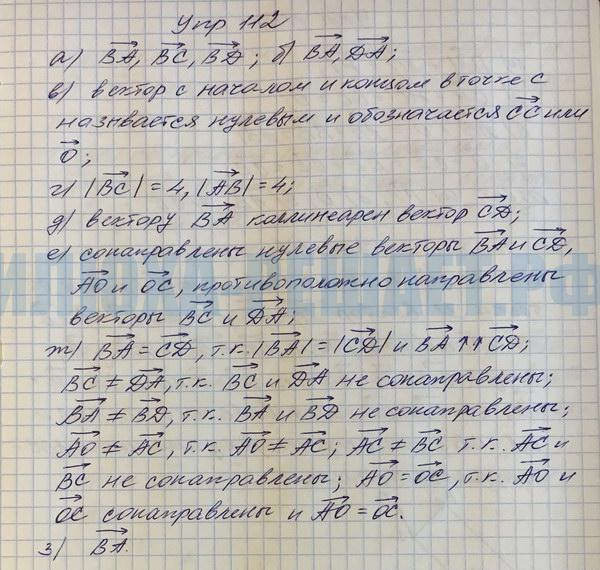 Упр 112
а) B͞A, B͞C, B͞D; б) B͞A, D͞A;
в) вектор с началом и концом в точке С
называется нулевым и обозначается C͞C или
O͞;
г) |B͞C| = 4, |A͞B| = 4;
д) вектору B͞A коллинеарен вектор C͞D;
е) сонаправлены нулевые векторы B͞A и C͞D,
A͞O и O͞C, противоположно направлены
векторы B͞C и D͞A;
ж) B͞A = C͞D, т.к. |B͞A| = |C͞D| и B͞A ↑↑ C͞D;
B͞C ≠ D͞A, т.к. B͞C и D͞A не сонаправлены;
B͞A ≠ B͞D, т.к. B͞A и B͞D не сонаправлены;
A͞O ≠ A͞C, т.к. A͞O ≠ A͞C; A͞C ≠ B͞C т.к. A͞C и
B͞C не сонаправлены; A͞O = O͞C, т.к. A͞O и
O͞C сонаправлены и A͞O = O͞C.
з) B͞A.